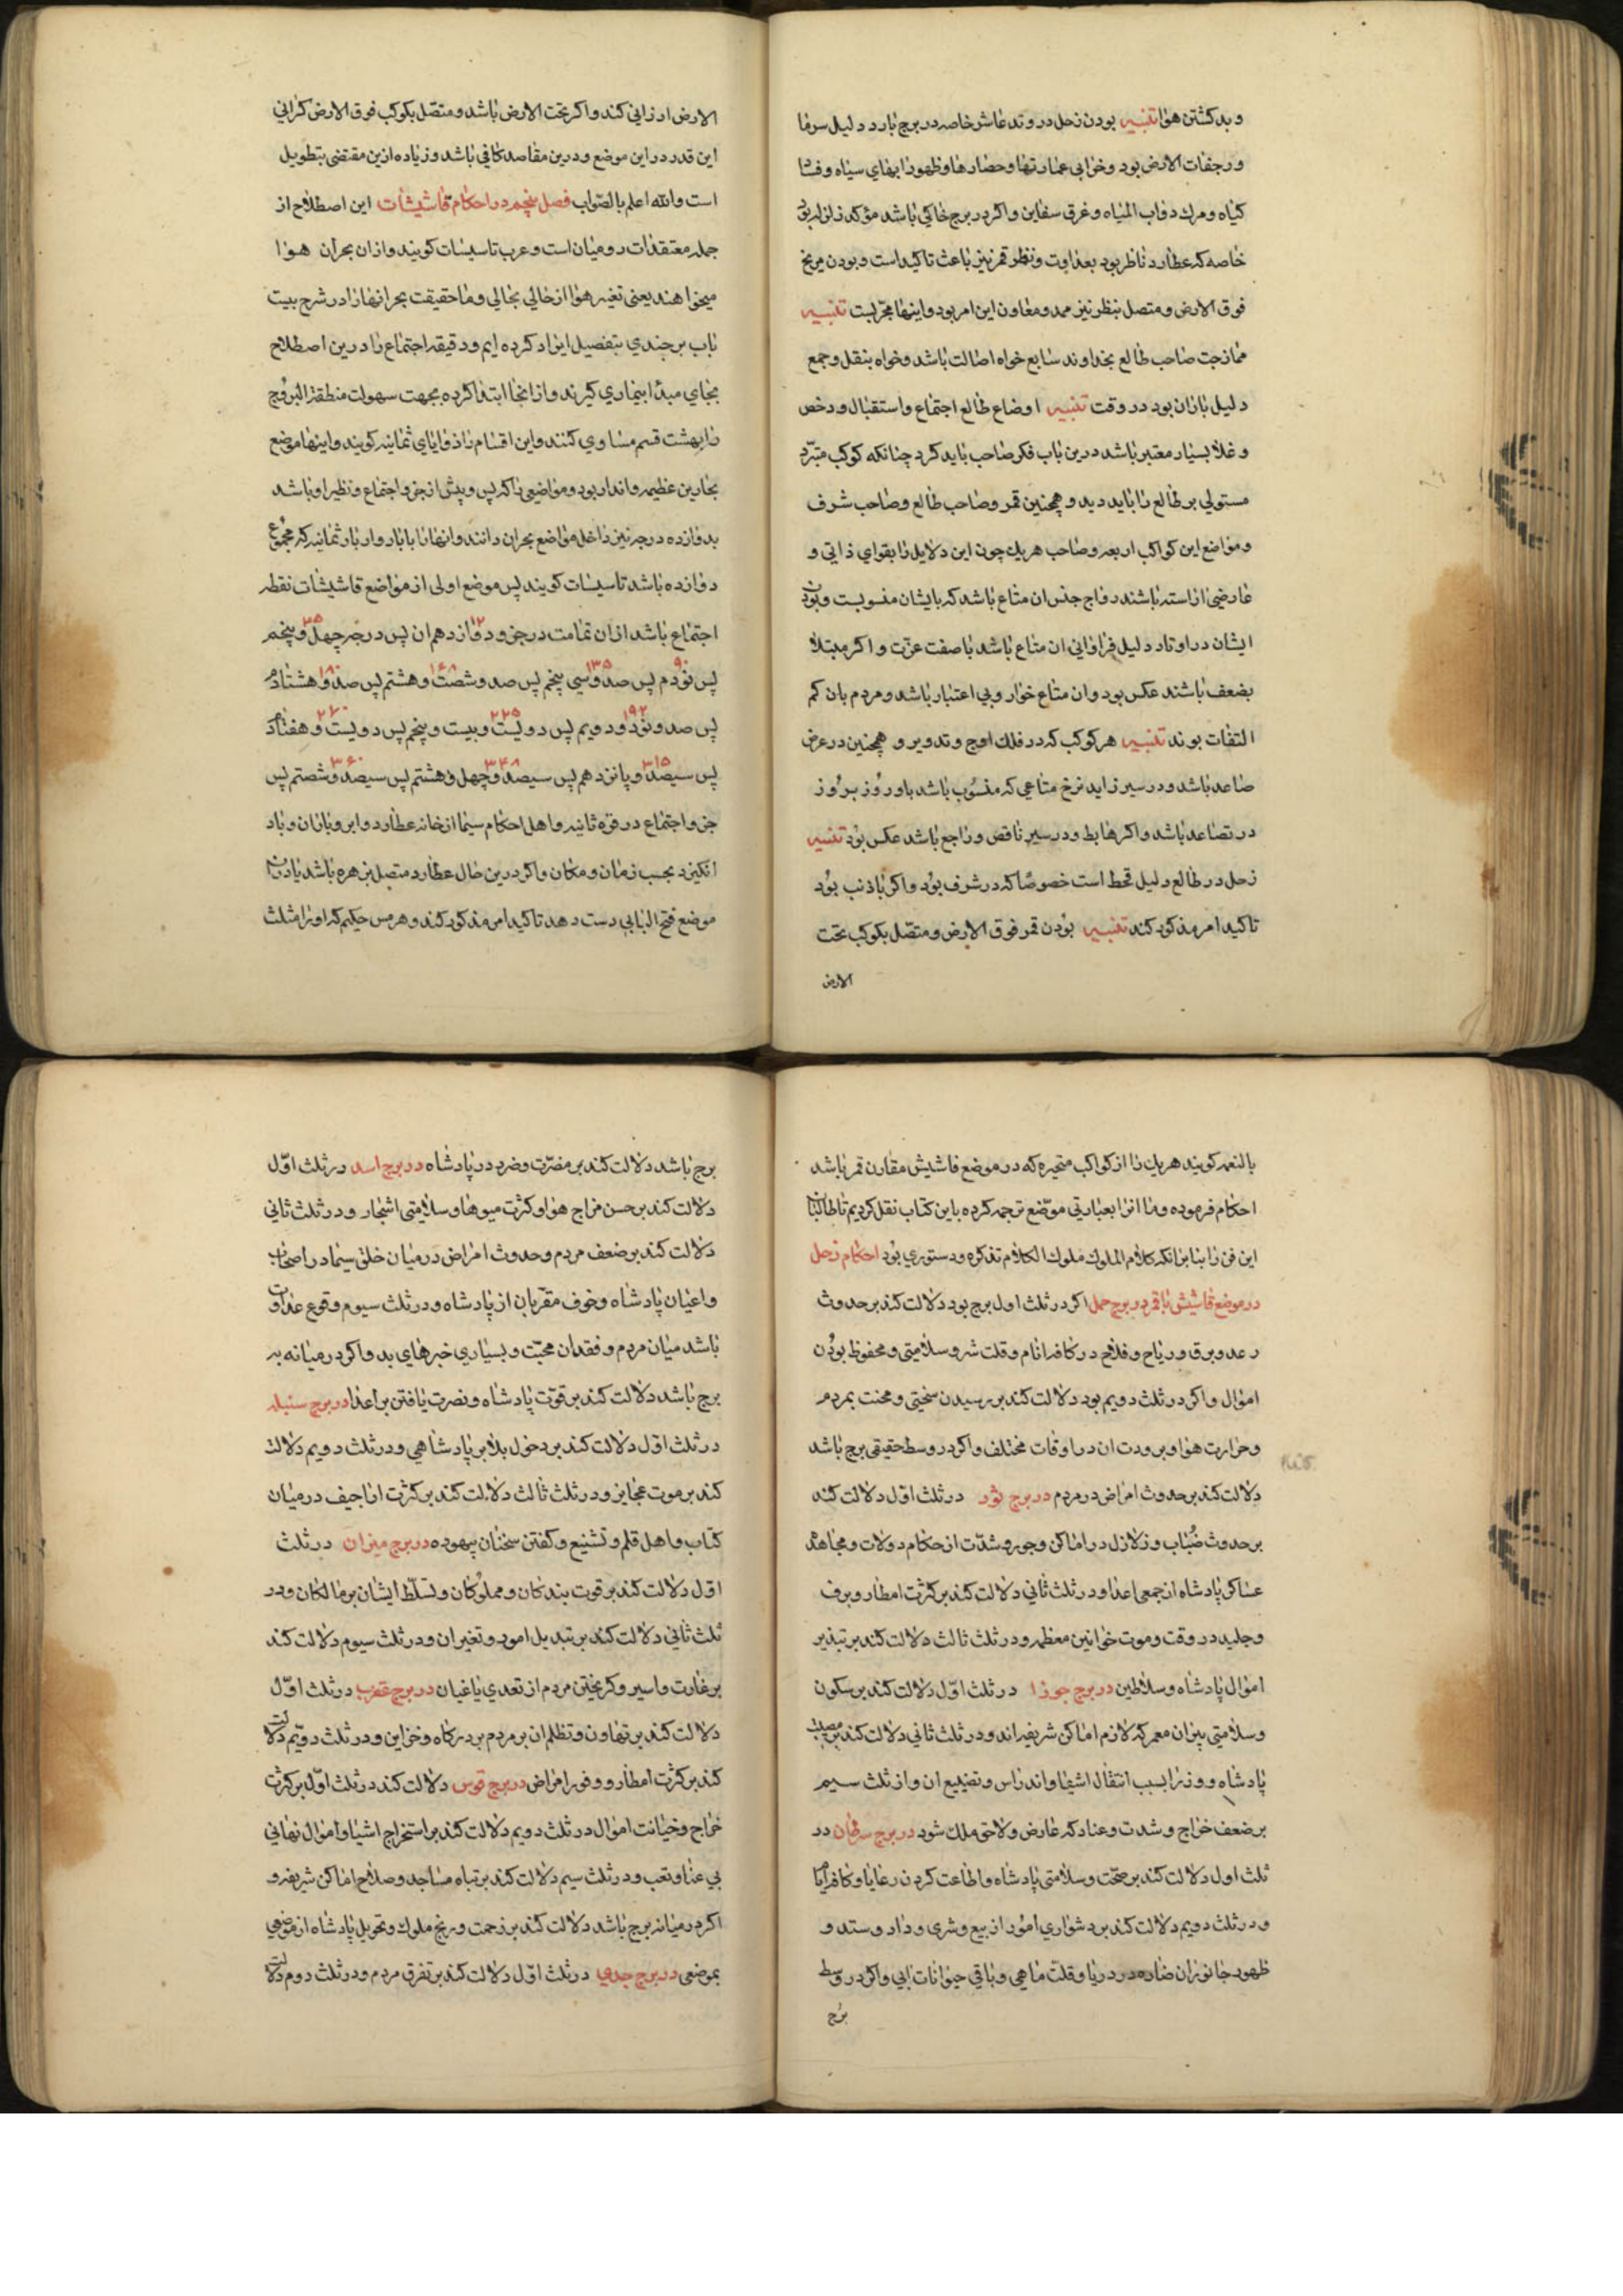 و بد کشتن هوا تنبیه بودن زحل در وتد عاشر خاصه در برج بارد دلیل سرما
و رجفات الارض بود و خرابی عمارتها و حصارها و ظهور ابهای سیاه و فساد
کیاه و مرك دواب المیاه و غرق سفاین و اکر در برج خاکی باشد مؤکد زلزله بود
خاصه که عطارد ناظر بود بعداوت و نظر قمر نیز باعث تاکید است و بودن مریخ
فوق الارض و متصل بنظر نیز ممد و معاون این امر بود و اینها مجربست تنبیه
ممازجت صاحب طالع بخداوند سابع خواه اصالت باشد و خواه بنقل و جمع
دلیل باران بود در وقت تنبیه اوضاع طالع اجتماع و استقبال و رخص
و غلا بسیار معتبر باشد درین باب فکر صاحب باید کرد چنانکه کوکب متبرد
مستولی بر طالع را باید دید و همچنین قمر و صاحب طالع و صاحب شرف
و مواضع این کواکب اربعه و صاحب هریك چون این دلایل را بقوای ذاتی و
عارضی اراسته باشند رواج جنس ان متاع باشد که بایشان منسوبست و بودن
ایشان در اوتاد دلیل فراوانی ان متاع باشد باصفت عزت و اکر مبتلا
بضعف باشند عکس بود و ان متاع خوار و بی اعتبار باشد و مردم بان کم
التفات بوند تنبیه هر کوکب که در فلك اوج و تدویر و همچنین در عرض
صاعد باشد و در سیر زاید نرخ متاعی که منسوب باشد باو روز بروز
در تصاعد باشد و اکر هابط و در سیر ناقص و راجع باشد عکس بود تنبیه
زحل در طالع دلیل قحط است خصوصا که در شرف بود و اکر با ذنب بود
تاکید امر مذکور کند تنبیه بودن قمر فوق الارض و متصل بکوکب تحت
الارض
الارض ارزانی کند و اکر تحت الارض باشد و متصل بکوکب فوق الارض کرانی
این قدر در این موضع و درین مقاصد کافی باشد و زیاده ازین مقتضی تطویل
است والله اعلم بالصواب فصل پنجم در احکام قاشیشات این اصطلاح از
جمله معتقدات رومیان است و عرب تاسیسات کویند و ازان بحران هوا
میخواهند یعنی تغیر هوا از حالی بحالی و ما حقیقت بحرانها را در شرح بیست
باب برجندی بتفصیل ایراد کرده ایم و دقیقه اجتماع را درین اصطلاح
بجای مبدأ بیماری کیرند و از انجا ابتدا کرده بجهت سهولت منطقة البروج
را بهشت قسم مساوی کنند و این اقسام را زوایای ثمانیه کویند و اینها موضع
بحارین عظیمه و انذار بود و مواضعی را که پس و پیش از جزو اجتماع و نظیر او باشد
بدوازده درجه نیز داخل مواضع بحران دانند و انها را با بار و اربار ثمانیه که مجموع
دوازده باشد تاسیسات کویند پس موضع اولی از مواضع قاشیشات نقطه
اجتماع باشد ازان تمامت درجزو دوازدهم ان پس درجه چهل و پنجم
۱۲ ۴۵
پس نودم پس صد و سی پنجم پس صد و شصت و هشتم پس صد و هشتادم
۹۰ ۱۳۵ ۱۶۸ ۱۸۰
پس صد و نود و دویم پس دویست و بیست و پنجم پس دویست و هفتاد
۱۹۲ ۲۲۵ ۲۷۰
پس سیصد و پانزدهم پس سیصد و چهل و هشتم پس سیصد و شصتم پس
۳۱۵ ۳۴۸ ۳۶۰
جزو اجتماع در قوه ثانیه و اهل احکام سیما از خانه عطارد و ابر و باران و باد
انکیزد بحسب زمان و مکان و اکر درین حال عطارد متصل بزهره باشد یا دران
موضع فتح البابی دست دهد تاکید امر مذکور کند و هرمس حکیم که او را مثلث
بالنعمه کویند هریك را از کواکب متحیره که در موضع قاشیش مقارن قمر باشد
احکام فرموده و ما انرا بعبارتی موضح ترجمه کرده باین کتاب نقل کردیم تا طالبان
این فن را بنا برانکه کلام الملوك ملوك الکلام تذکره و دستوری بود احکام زحل
در موضع قاشیش با قمر در برج حمل اکر در ثلث اول برج بود دلالت کند بر حدوث
رعد و برق و ریاح و فلاح در کافه انام و قلت شر و سلامتی و محفوظ بودن
اموال و اکر در ثلث دویم بود دلالت کند بر رسیدن سختی و محنت بمردم
و حرارت هوا و برودت ان در اوقات مختلف و اکر در وسط حقیقی برج باشد
دلالت کند بر حدوث امراض در مردم در برج ثور در ثلث اول دلالت کند
بر حدوث ضباب و زلازل در اماکن و جور و شدت از حکام دولات و مجاهده
عساکر پادشاه از جمعی اعدا و در ثلث ثانی دلالت کند بر کثرت امطار و برف
و جلید در وقت و موت خواتین معظمه و در ثلث ثالث دلالت کند بر تبذیر
اموال پادشاه و سلاطین در برج جوزا در ثلث اول دلالت کند بر سکون
و سلامتی پیران معمر که لازم اماکن شریفه اند و در ثلث ثانی دلالت کند بر مصیبت
پادشاه و وزرا بسبب انتقال اشیا و اندراس و تضییع ان و از ثلث سیم
بر ضعف خراج و شدت و عناد که عارض و لاحق ملك شود در برج سرطان در
ثلث اول دلالت کند بر صحت و سلامتی پادشاه و اطاعت کردن رعایا و کافه برایا
و در ثلث دویم دلالت کند بر دشواری امور از بیع و شری و داد و ستد و
ظهور جانوران ضاره در دریا و قلت ماهی و باقی حیوانات ابی و اکر در وسط
برج
برج باشد دلالت کند بر مضرت و ضرر در پادشاه در برج اسد در ثلث اول
دلالت کند بر حسن مزاج هوا و کثرت میوها و سلامتی اشجار و در ثلث ثانی
دلالت کند بر ضعف مردم و حدوث امراض در میان خلق سیما در اصحاب
و اعیان پادشاه و خوف مقربان از پادشاه و در ثلث سیوم وقوع عداوت
باشد میان مردم و فقدان محبت و بسیاری خبرهای بد و اکر در میانه به
برج باشد دلالت کند بر قوت پادشاه و نصرت یافتن بر اعدا در برج سنبله
در ثلث اول دلالت کند بر دخول بلا بر پادشاهی و در ثلث دویم دلالت
کند بر موت عجایز و در ثلث ثالث دلالت کند بر کثرت اراجیف در میان
کتاب و اهل قلم و تشنیع و کفتن سخنان بیهوده در برج میزان در ثلث
اول دلالت کند بر قوت بندکان و مملوکان و تسلط ایشان بر مالکان و در
ثلث ثانی دلالت کند بر تبدیل امور و تغیر ان و در ثلث سیوم دلالت کند
بر غارت و اسیر و کریختن مردم از تعدی یاغیان در برج عقرب در ثلث اول
دلالت کند بر تهاون و تظلم ان بر مردم بر درکاه و خزاین و در ثلث دویم دلالت
کند بر کثرت امطار و وفور امراض در برج قوس دلالت کند در ثلث اول بر کثرت
خراج و خیانت اموال در ثلث دویم دلالت کند بر استخراج اشیا و اموال نهانی
بی عنا و تعب و در ثلث سیم دلالت کند بر تباه مساجد و صلاح اماکن شریفه و
اکر در میانه برج باشد دلالت کند بر زحمت و رنج ملوك و تحویل پادشاه از موضعی
بموضعی در برج جدی در ثلث اول دلالت کند بر تفرق مردم و در ثلث دوم دلالت